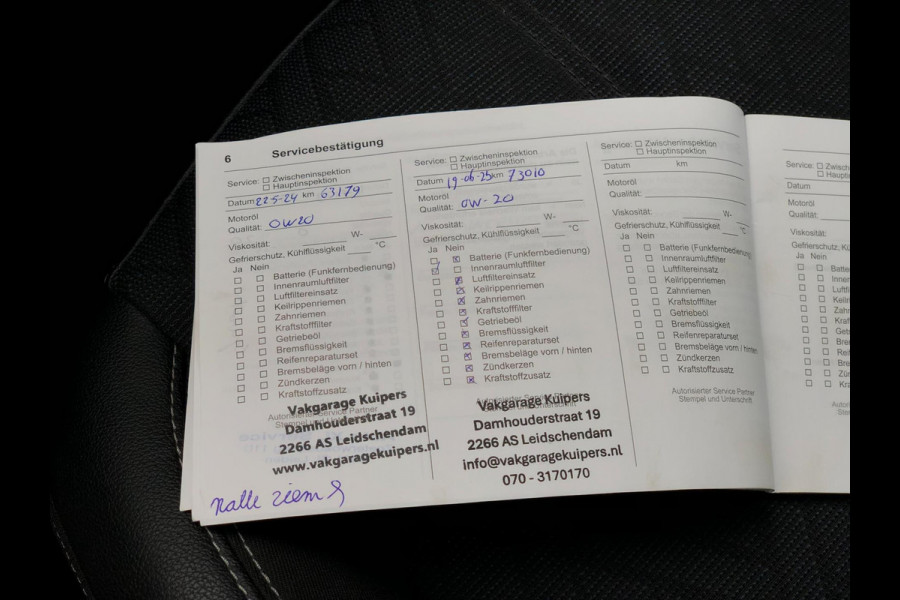 6 Servicebestätigung
Service: Zwischeninspektion
Hauptinspektion
Datum 22-5-24 km 63179
Motoröl
Qualität: OW20
Viskosität: W-
Gefrierschutz, Kühlflüssigkeit °C
Ja Nein
Batterie (Funkfernbedienung)
Innenraumluftfilter
Luftfiltereinsatz
Keilrippenriemen
Zahnriemen
Kraftstofffilter
Getriebeöl
Bremsflüssigkeit
Reifenreparaturset
Bremsbeläge vorn / hinten
Zündkerzen
Kraftstoffzusatz
Autorisierter Service Partner
Stempel und Unterschrift
Vakgarage Kuipers
Damhouderstraat 19
2266 AS Leidschendam
www.vakgaragekuipers.nl
Service: Zwischeninspektion
Hauptinspektion
Datum 19-06-25 km 73010
Motoröl
Qualität: OW-20
Viskosität: W-
Gefrierschutz, Kühlflüssigkeit °C
Ja Nein
Batterie (Funkfernbedienung)
Innenraumluftfilter
Luftfiltereinsatz
Keilrippenriemen
Zahnriemen
Kraftstofffilter
Getriebeöl
Bremsflüssigkeit
Reifenreparaturset
Bremsbeläge vorn / hinten
Zündkerzen
Kraftstoffzusatz
Vakgarage Kuipers
Damhouderstraat 19
2266 AS Leidschendam
info@vakgaragekuipers.nl
070 - 3170170
Service: Zwischeninspektion
Hauptinspektion
Datum km
Motoröl
Qualität:
Viskosität: W-
Gefrierschutz, Kühlflüssigkeit °C
Ja Nein
Batterie (Funkfernbedienung)
Innenraumluftfilter
Luftfiltereinsatz
Keilrippenriemen
Zahnriemen
Kraftstofffilter
Getriebeöl
Bremsflüssigkeit
Reifenreparaturset
Bremsbeläge vorn / hinten
Zündkerzen
Kraftstoffzusatz
Autorisierter Service Partner
Stempel und Unterschrift
Service: Zwisch
Haupt
Datum
Motoröl
Qualität:
Viskosität:
Gefrierschutz, Kü
Ja Nein
Batte
Inne
Luftf
Keil
Zah
Kra
Get
Bre
Rei
Bre
Zün
Kra